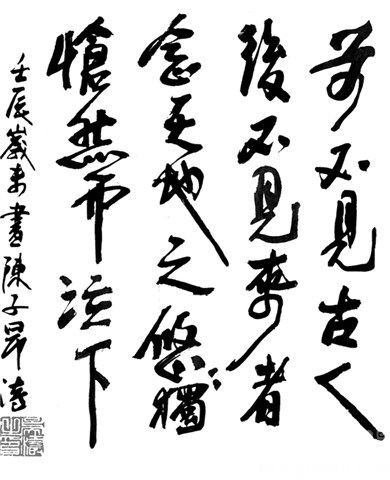 前不見古人
後不見來者
念天地之悠々獨
愴然而涕下
壬辰歲末書陳子昂詩